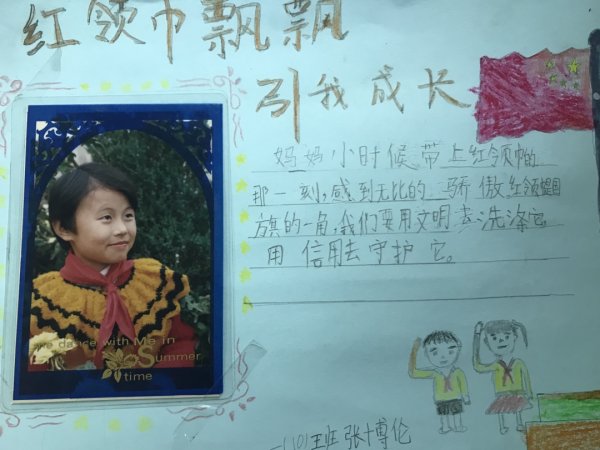 红领巾飘飘
引我成长
妈妈小时候带上红领帕的
那一刻,感到无比的骄傲红领是国
旗的一角,我们要用文明去洗涤它
用信用去守护它。
dance with Me in
Summer
time
一(10)班张博伦